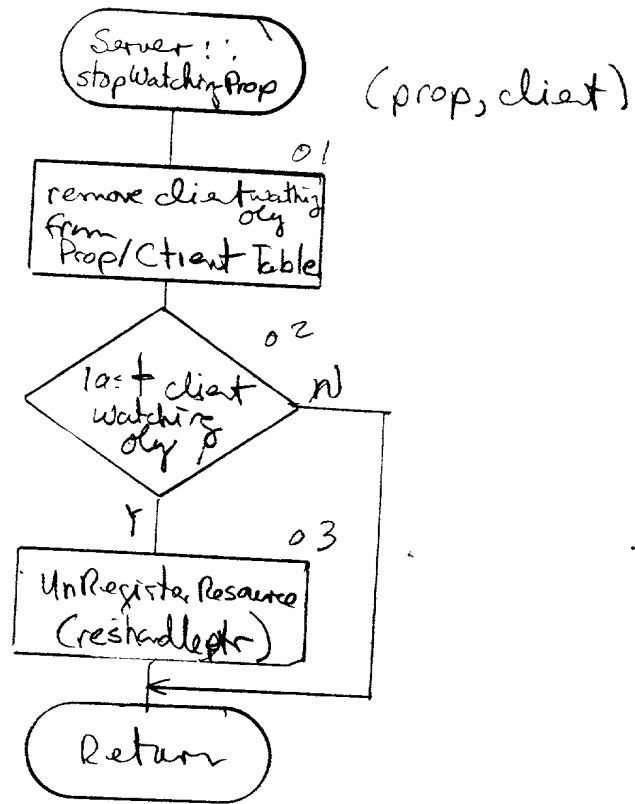 Server::
stopWatchingProp
(prop, client)
01
remove client watching
obj
from
Prop/Client Table
02
last client
watching
obj ?
N
Y
03
UnRegister Resource
(reshandleptr)
Return